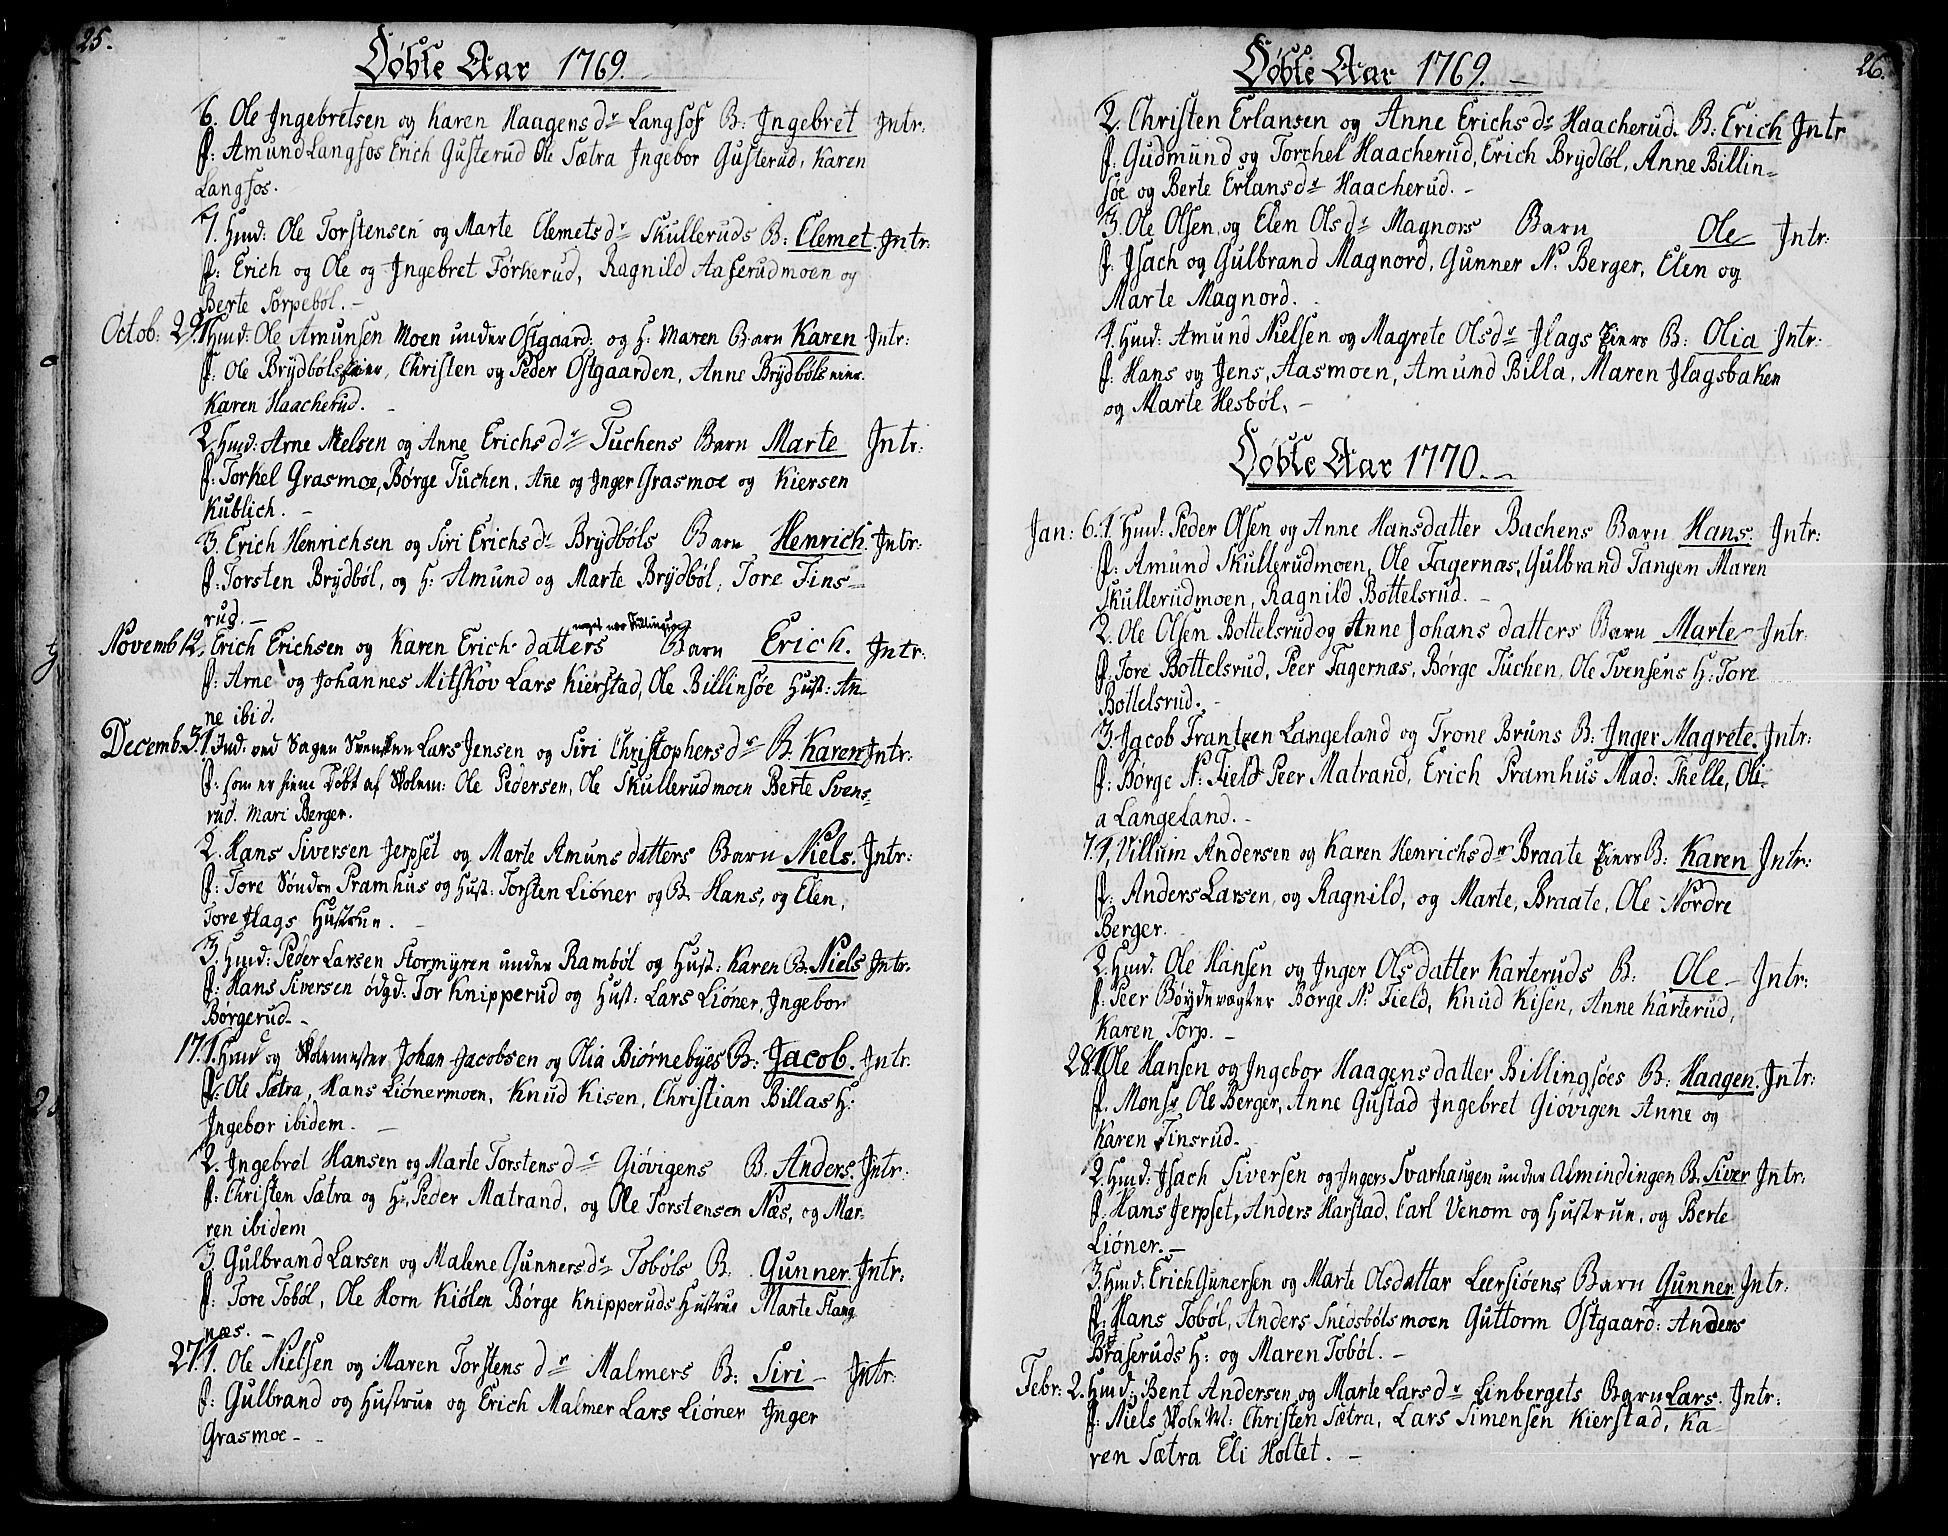 25.
Döbte Aar 1769.
6. Ole Ingebretsen og Karen Haagens dr Langfos B: Ingebret Intr:
F: Amund Langfos Erich Gusterud Ole Sætra Ingebor Gusterud, Karen
Langfos.
7. Hmd: Ole Torstensen og Marte Clemets dr Skulleruds B: Clemet Intr:
F: Erich og Ole og Ingebret Törkerud, Ragnild Aaserudmoen og
Berte Torpeböl.
Octob: 29. 1 Hmd: Ole Amunsen Moen under Östgaard: og H: Maren Barn Karen Intr:
F: Ole Brydböls eier, Christen og Peder Östgaarden, Anne Brydböls eier.
Karen Haacherud.
2. Hmd: Arne Nielsen og Anne Erichs dr Tuchens Barn Marte Intr:
F: Torkel Grasmoe, Börge Tuchen, Ane og Inger Grasmoe og Kiersen
Kublich.
3. Erich Henrichsen og Siri Erichs dr Brydböls Barn Henrich. Intr:
F: Torsten Brydböl, og H: Amund og Marte Brydböl, Tore Fins-
rud.
Novemb 12. Erich Erichsen og Karen Erichs datters Barn Erich. Intr:
F: Arne og Johannes Mitskov Lars Kierstad, Ole Billinsöe Hust: An-
ne ibid.
Decemb. 3. 1. Ind: ved Sagen Svensken Lars Jensen og Siri Christophers dr B: Karen Intr:
F: som er hiem Döbt af Skolem: Ole Pedersen, Ole Skullerudmoen Berte Svens-
rud. Mari Berger.
2. Hans Siversen Jerpset og Marte Amuns datters Barn Niels. Intr:
F: Tore Söndre Pramhus og Hust: Torsten Liöner og B Hans, og Elen,
Tore Flags Hustrue.
3. Hmd: Peder Larsen Stormyren under Ramböl og Hust: Karen B: Niels Intr.
F: Hans Siversen ödgd: Tor Knipperud og Hust: Lars Liöner, Ingebor
Börgerud.
17. 1. Hmd og Skolemester Johan Jacobsen og Olia Biörnebyes B: Jacob. Intr:
F: Ole Sætra, Hans Liönermoen, Knud Kisen, Christian Billas H:
Ingebor ibidem.
2. Ingebret Hansen og Marte Torstens dr Giövigens B. Anders. Intr:
F: Christen Sætra og H: Peder Matrand, og Ole Torstensen Næs, og Mar-
ren ibidem
3. Gulbrand Larsen og Malene Gunners dr Toböls B: Gunner. Intr:
F: Tore Toböl, Ole Horn Kiölen Börge Knipperuds Hustrue Marte Stang
næs.
27. 1. Ole Nielsen og Maren Torstens dr Malmers B: Siri Intr:
F: Gulbrand og Hustrue og Erich Malmer Lars Liöner Inger
Grasmoe.
26.
Döbte Aar 1769.
2. Christen Erlansen og Anne Erichs dr Haacherud. B: Erich Intr
F: Gudmund og Torchel Haacherud, Erich Brydböl, Anne Billin-
söe og Berte Erlans dr Haacherud.
3. Ole Olsen og Elen Ols dr Magnors Barn Ole Intr:
F: Isach og Gulbrand Magnord, Gunner N. Berger, Elen og
Marte Magnord.
4. Hmd: Amund Nielsen og Magrete Ols dr Flags Eiers B: Olia Intr:
F: Hans og Jens, Aasmoen, Amund Billa, Maren Flagsbaken
og Marte Hesböl.
Döbte Aar 1770.
Jan: 6. 1. Hmd: Peder Olsen og Anne Hansdatter Bachens Barn Hans. Intr:
F: Amund Skullerudmoen, Ole Fagernæs, Gulbrand Tangen Maren
Skullerudmoen, Ragnild Bottelsrud.
2. Ole Olsen Bottelsrud og Anne Johans datters Barn Marte Intr:
F: Tore Bottelsrud, Peer Fagernæs, Börge Tuchen, Ole Svensens H: Tore
Bottelsrud.
3. Jacob Frantzen Langeland og Trone Bruns B: Inger Magrete. Intr:
F: Börge N: Field Peer Matrand, Erich Pramhus Mad: Thelle, Oli-
a Langeland.
7. 1. Villum Andersen og Karen Henrichs dr Braate Eiers B: Karen Intr:
F: Anders Larsen, og Ragnild, og Marte, Braate, Ole Nordre
Berger.
2. Hmd. Ole Hansen og Inger Ols datter Karteruds B: Ole Intr:
F: Peer Böydevogter Börge N: Field, Knud Kisen, Anne Karterud,
Karen Torp.
28. 1 Ole Hansen og Ingebor Haagens datter Billingsöes B: Haagen. Intr:
F. Monsr Ole Berger, Anne Gustad Ingebret Giövigen Anne og
Karen Finsrud.
2. Hmd: Isach Siversen og Inger Svarhaugen under Almindingen B. Siver Intr:
F: Hans Jerpset, Anders Harstad, Carl Venom og Hustrue, og Berte
Liöner.
3. Hmd: Erich Gunersen og Marte Olsdattar Leersiöens Barn Gunner. Intr:
F: Hans Toböl, Anders Snedsböls moen Guttorm Östgaard: Anders
Braseruds H: og Maren Toböl.
Febr: 2. Hmd: Bent Andersen og Marte Lars dr Linbergets Barn Lars. Intr:
F: Niels Skole M: Christen Sætra, Lars Simensen Kierstad, Ka-
ren Sætra Eli Holtet.